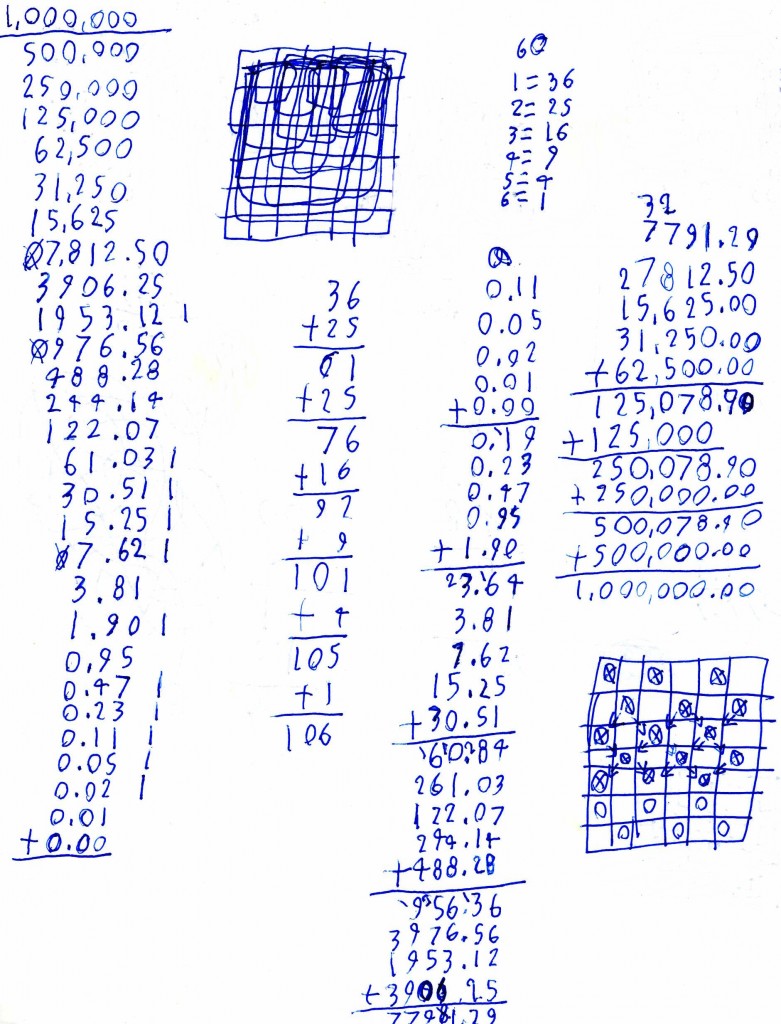 1,000,000
500,000
250,000
125,000
62,500
31,250
15,625
07,812.50
3906.25
1953.12 1
0976.56
488.28
244.14
122.07
61.03 1
30.51 1
15.25 1
7.62 1
3.81
1.90 1
0.95
0.47 1
0.23 1
0.11 1
0.05 1
0.02 1
0.01
+0.00
36
+25
61
+25
76
+16
92
+ 9
101
+ 4
105
+1
106
60
1=36
2=25
3=16
4=9
5=4
6=1
0.11
0.05
0.02
0.01
+0.00
0.19
0.23
0.47
0.95
+1.90
23.64
3.81
7.62
15.25
+30.51
60.84
261.03
122.07
244.14
+488.28
956.36
3976.56
1953.12
+3906.25
7791.29
32
7791.29
27812.50
15,625.00
31,250.00
+62,500.00
125,078.90
+125,000
250,078.90
+250,000.00
500,078.90
+500,000.00
1,000,000.00